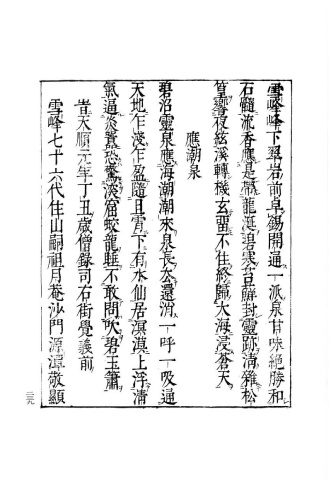 雪峰峰下翠岩前卓錫開通一派泉甘味絕勝和
石髓流香應是帶龍涎碧寒苔蘚封靈跡清雜松
篁響夜絃溪轉機玄留不住終歸大海浸蒼天
應潮泉
碧沼靈泉應海潮潮來泉長夾還消一呼一吸通
天地乍淺乍盈隨旦宵下有水仙居溟漠上浮清
氣逼炎
溪窟蛟龍
不敢問吹碧玉簫
旹天順元年丁丑歲僧錄司右街覺義前
雪峰七十六代住山嗣祖月菴沙門源潭敬顯
三九